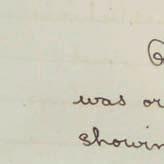 was or
showin